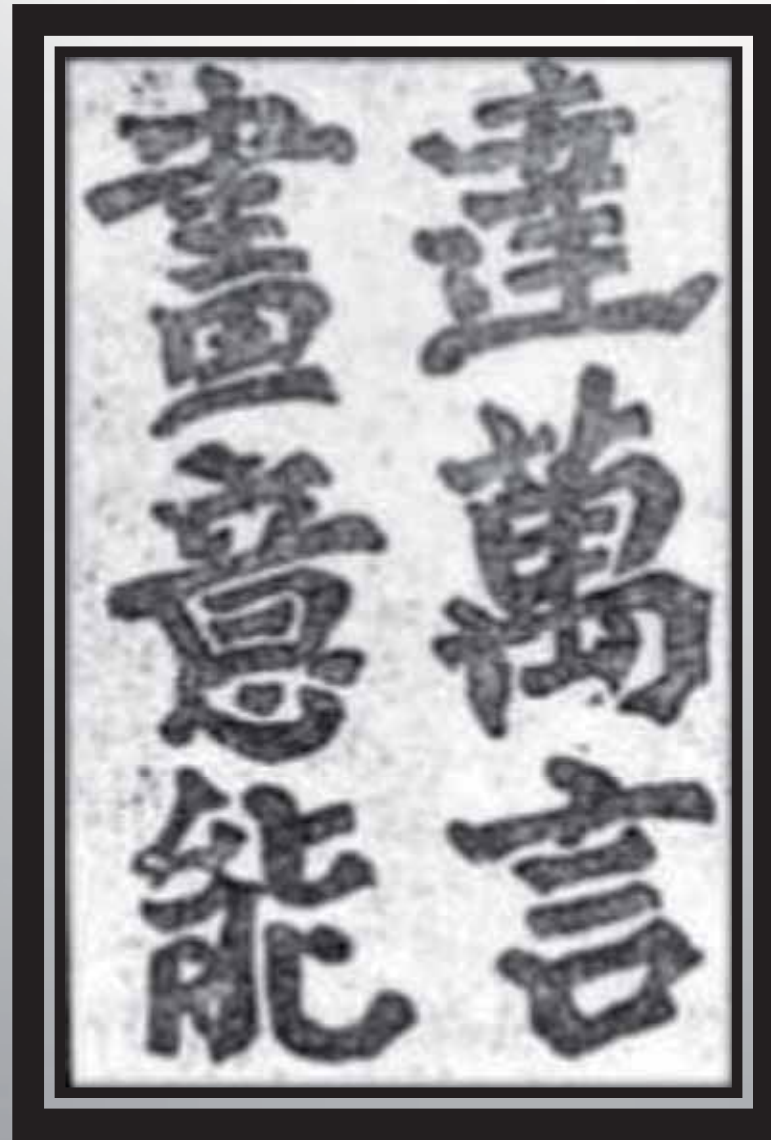 畫意能
達萬言